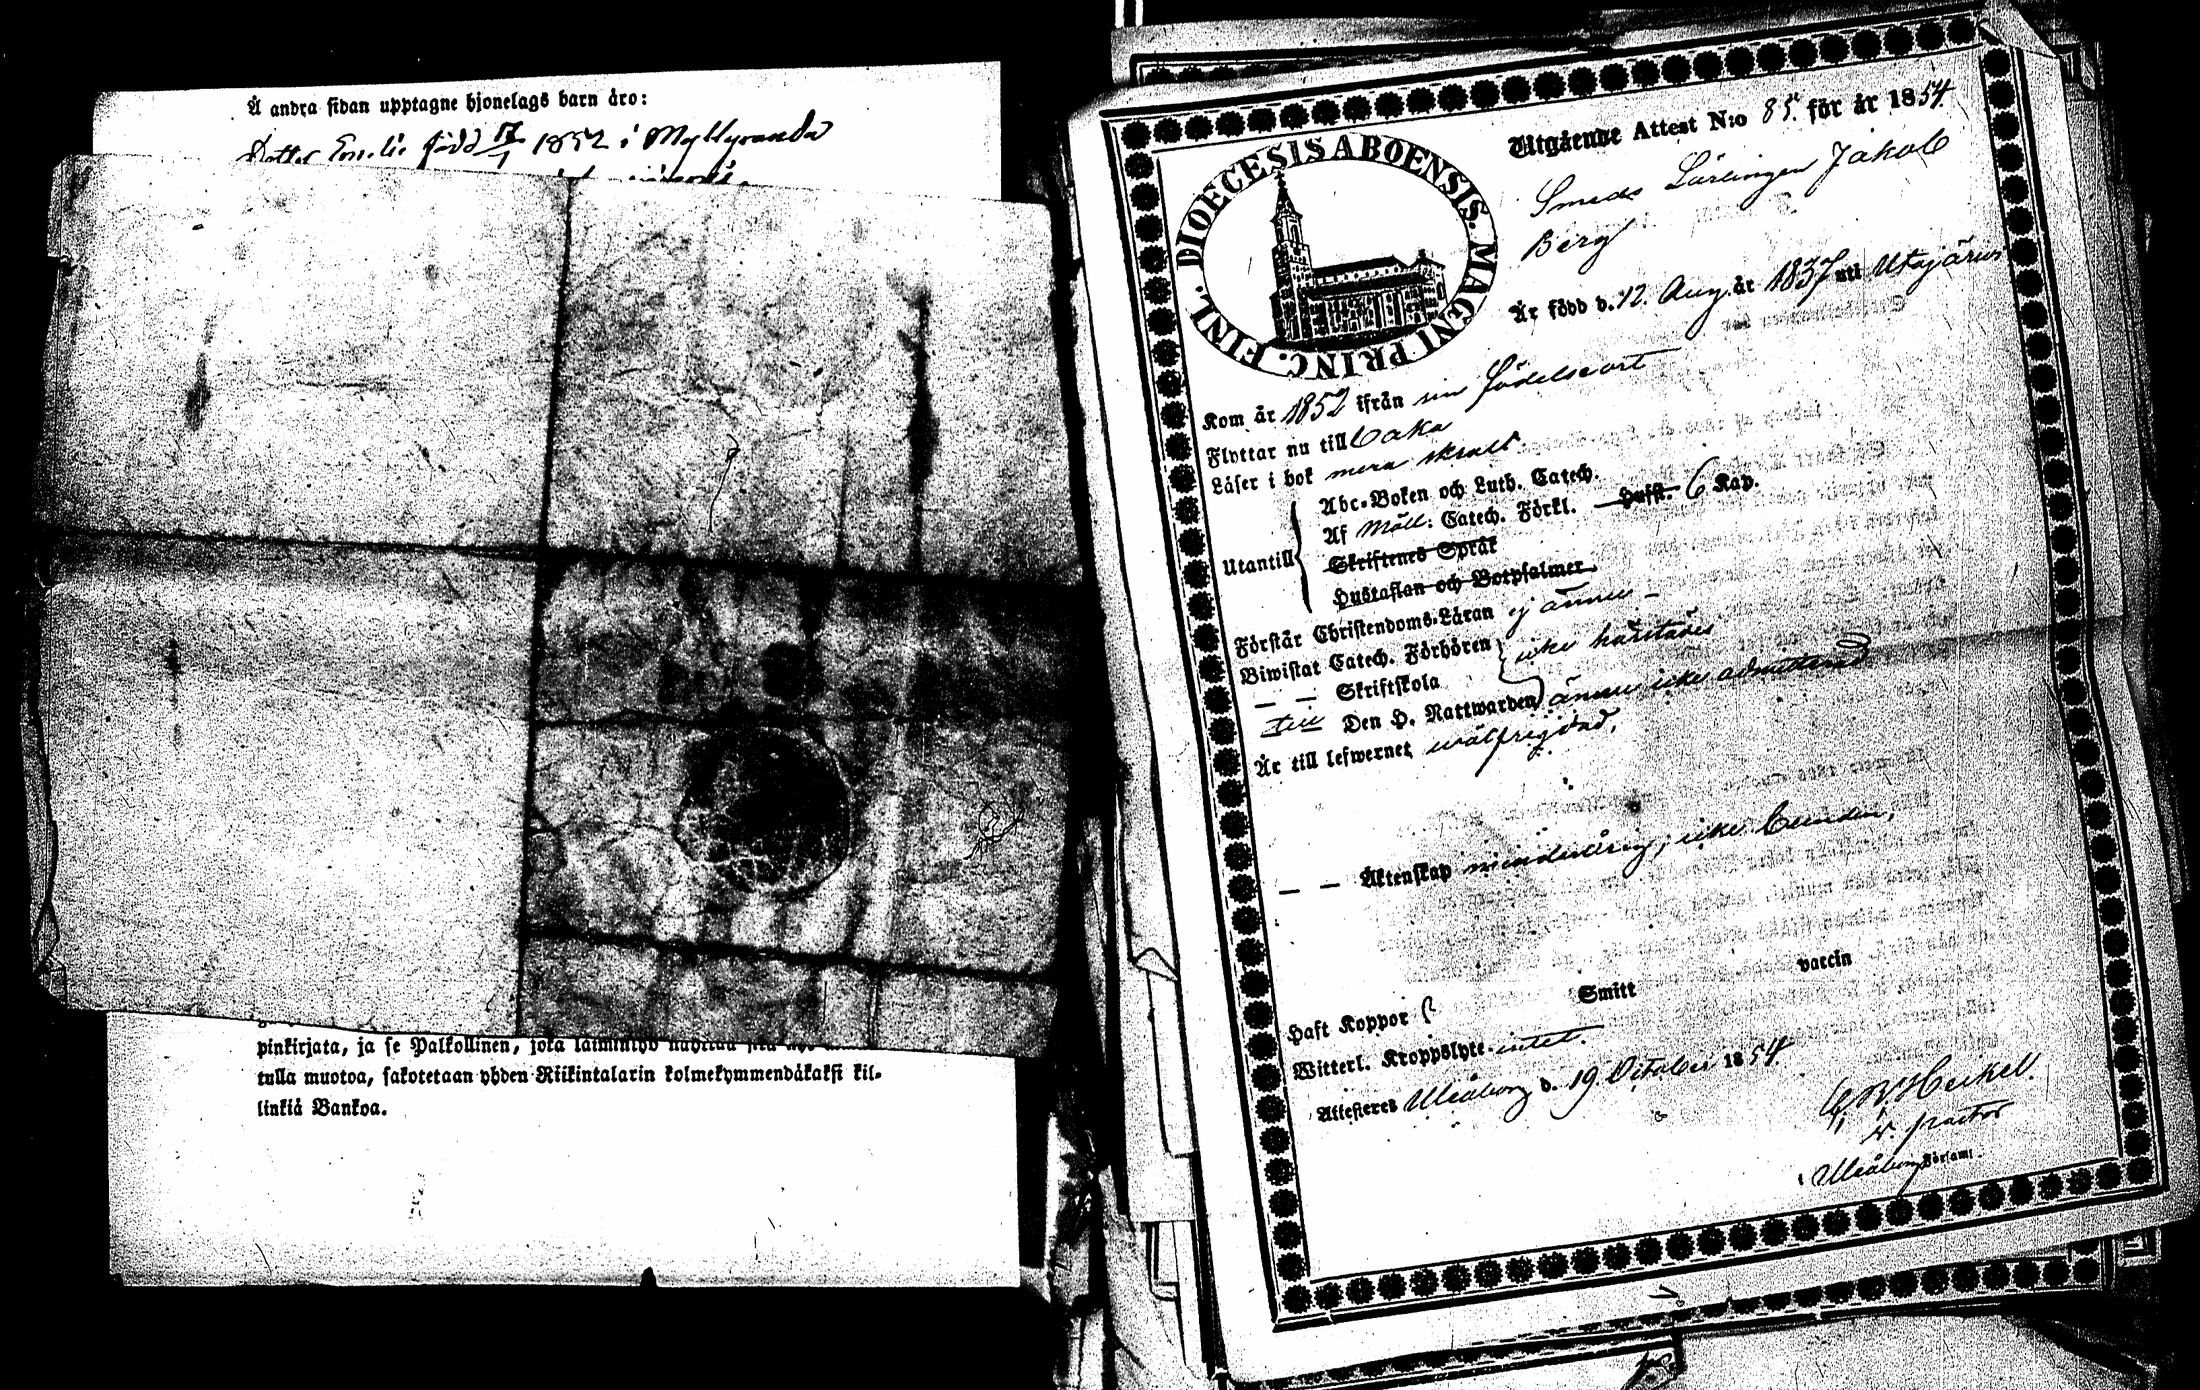 Å andra sidan upptagne hjonelags barn äro:
Dotter Emelie född 17/1 1852 i Myllyranda
pinkirjata, ja se Palkollinen, joka
tulla muotoa, sakotetaan yhden Riikintalarin kolmekymmendäkaksi kil-
linkiä Bankoa.
DIOECESIS ABOENSIS. MAGNI PRINC. FINL.
Utgående Attest N:o 85. för år 1854
Smeds Lärlingen Jakob
Berg
Är född d. 12. Aug. år 1837 uti Utajärvi
Kom år 1852 ifrån sin födelseort
Flyttar nu till Calca
Läser i bok mera skralt.
Abc-Boken och Luth. Catech.
Utantill Af Möll: Catech. Förkl. Husst. 6 Kap.
Skriftenes Språk
Hustaflan och Botpsalmer
Förstår Christendoms-Läran ej ännu
Biwistat Catech. Förhören icke
Skriftskola
till Den H. Nattwarden ännu icke admitterad
Är till lefwernet wälfrejdad.
Äktenskap minderårig, icke bunden,
vaccin
Haft Koppor Smitt
Witterl. Kroppslyte intet.
Attesteras Uleåborg d. 19 October 1854
Heikel.
v. pastor
i Uleåborg Församl.